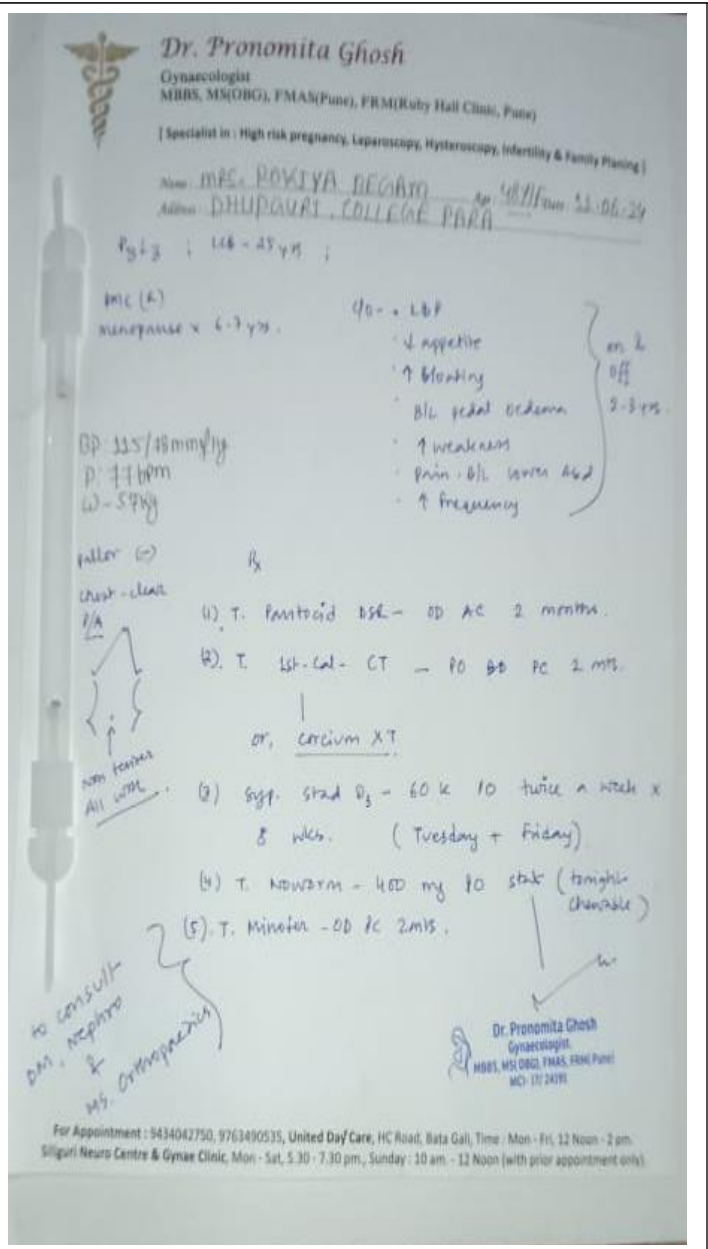 Dr. Pronomita Ghosh
Gynaecologist
MBBS, MS(OBG), FMAS(Pune), FRM(Ruby Hall Clinic, Pune)
[ Specialist in : High risk pregnancy, Laparoscopy, Hysteroscopy, Infertility & Family Planing ]
Name MRS. ROKIYA BEGAM Age 48Y/F Date 11.06.24
Address DHUPGURI, COLLEGE PARA
P3L3 ; LCB - 25 yrs ;
menopause x 6-7 yrs.
c/o - • LBP
↓ appetite
↑ bloating
B/L pedal oedema
↑ weakness
Pain. B/L lower Abd
↑ frequency
on & off
2-3 yrs.
BP: 115/78 mm/Hg
P: 77 bpm
W - 57kg
pallor (-)
chest - clear
P/A
non tender
All
Rx
(1) T. Pantocid DSR - OD AC 2 months.
(2). T. 1st-Cal- CT - PO BD PC 2 mts.
or, XT
(3) Syp. Stad D3 - 60 k PO twice a week x
8 wks. (Tuesday + Friday)
(4) T. Noworm - 400 mg PO stat (tonight- chewable)
(5). T. - OD PC 2mts.
to consult
DM, Nephro
&
MS. Orthopaedics
Dr. Pronomita Ghosh
Gynaecologist
MBBS, MS( OBG), FMAS, FRM( Pune)
For Appointment : 9434042750, 9763490535, United Day Care, HC Road, Bata Gali, Time : Mon - Fri, 12 Noon - 2 pm.
Siliguri Neuro Centre & Gynae Clinic, Mon - Sat, 5.30 - 7.30 pm., Sunday : 10 am. - 12 Noon (with prior appointment only)